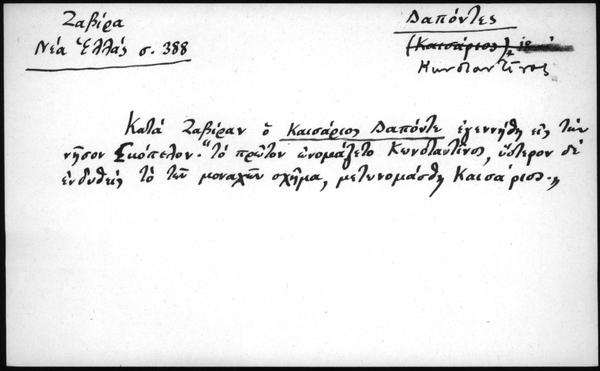 Ζαβίρα
Νέα Ἑλλάς σ. 388
Δαπόντες
(Καισάριος)
Κωνσταντῖνος
Κατά Ζαβίραν ὁ Καισάριος Δαπόντε ἐγεννήθη εἰς τήν
νῆσον Σκόπελον. "τό πρῶτον ὠνομάζετο Κωνσταντῖνος, ὕστερον δέ
ἐνδυθείς τό τῶν μοναχῶν σχῆμα, μετωνομάσθη Καισάριος.„